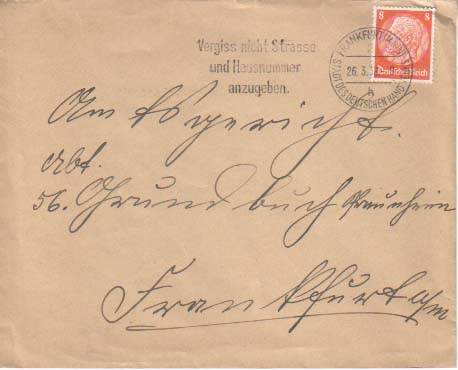 Vergiss nicht Strasse
und Hausnummer
anzugeben.
FRANKFURT (MAIN)
26. 3.
h
STADT DES DEUTSCHEN HAND
8 8
Deutsches Reich
Amtsgericht.
Abt.
56. Grundbuch Praunheim
Frankfurt a/m